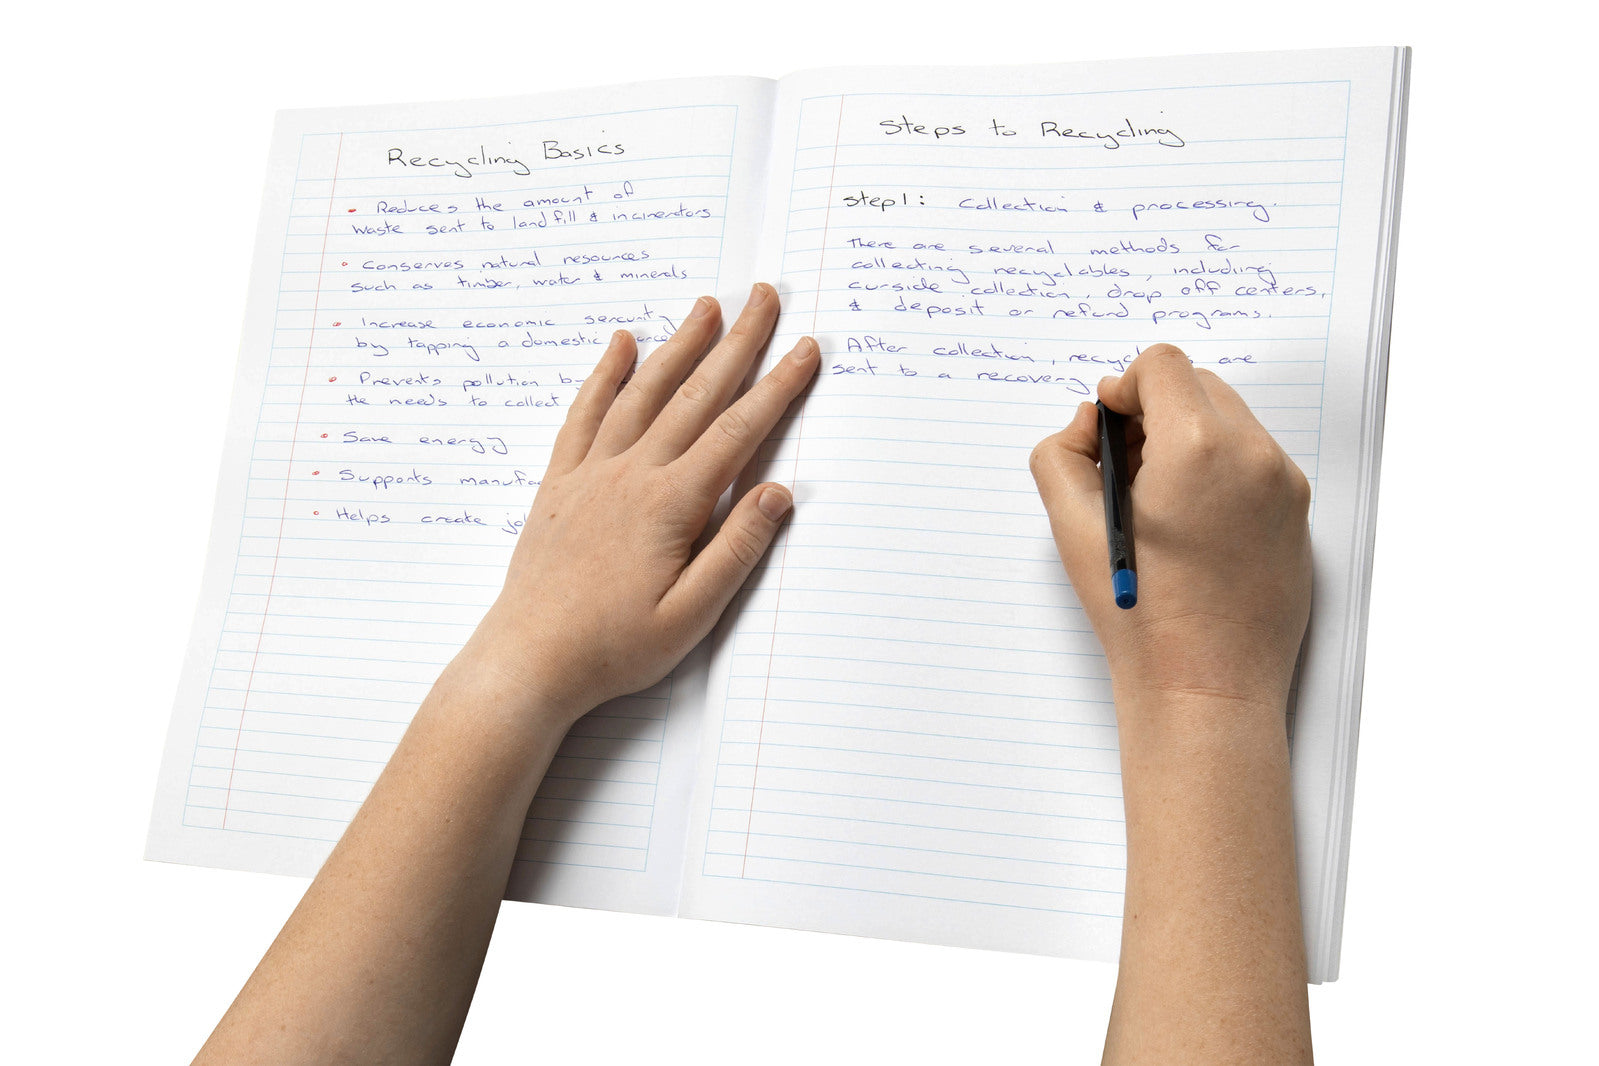 Recycling Basics
• Reduces the amount of
waste sent to landfill & incinerators
• Conserves natural resources
such as timber, water & minerals
• Increase economic sercurity
by tapping a domestic
• Prevents pollution
the needs to collect
• Save energy
• Supports
• Helps create
Steps to Recycling
Step 1: Collection & processing.
There are several methods for
collecting recyclables, including
curside collection, drop off centers,
& deposit or refund programs.
After collection, are
sent to a recovery